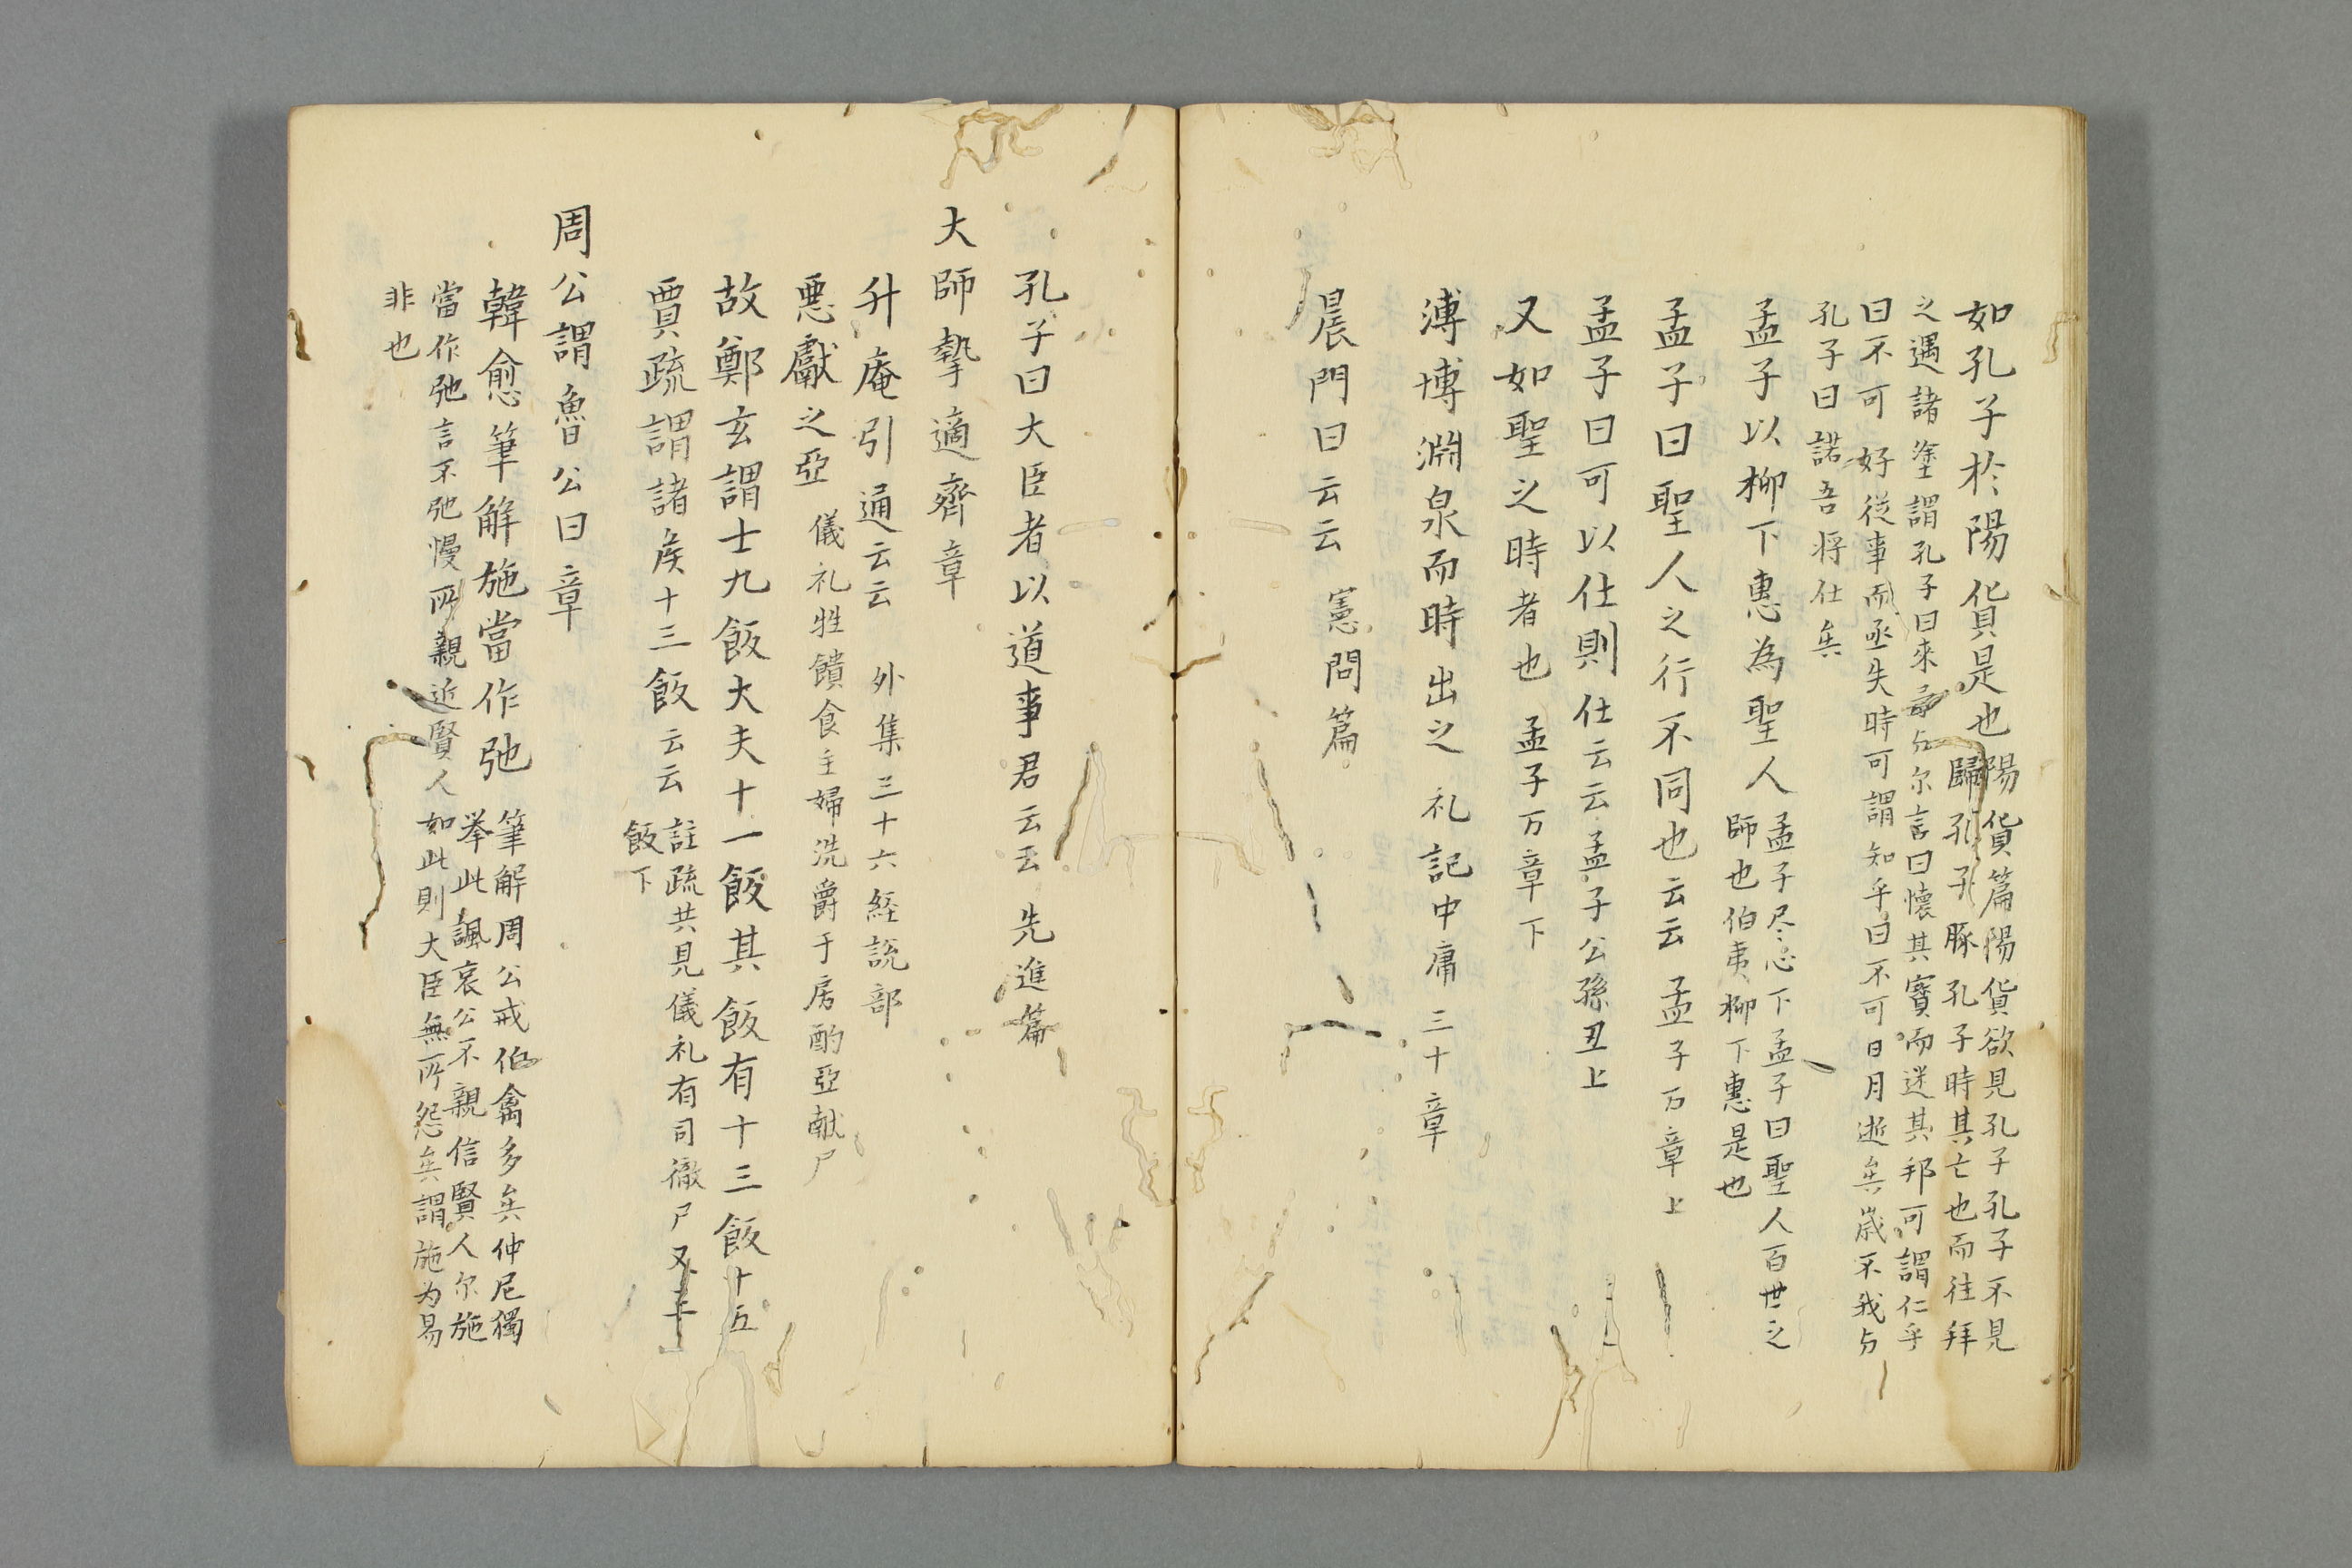 如孔子於陽貨是也
陽貨篇陽貨欲見孔子孔子不見
歸孔子豚孔子時其亡也而往拜
之遇諸塗謂孔子曰來予与尔言曰懐其寳而迷其邦可謂仁乎
曰不可好従事而亟失時可謂知乎曰不可日月逝矣歳不我与
孔子曰諾吾将仕矣
孟子以柳下惠為聖人
孟子尽心下孟子曰聖人百世之
師也伯夷柳下惠是也
孟子曰聖人之行不同也云云 孟子万章上
孟子曰可以仕則仕云云 孟子公孫丑上
又如聖之時者也 孟子万章下
溥博淵泉而時出之 礼記中庸三十章
晨門曰云云 憲問篇
孔子曰大臣者以道事君云云 先進篇
大師摯適齊章
升庵引通云云 外集三十六経説部
悪獻之亞 儀礼牲饋食主婦洗爵于房酌亞献尸
故鄭玄謂士九飯大夫十一飯其飯有十三飯十五
賈疏謂諸侯十三飯云云
註疏共見儀礼有司徹尸又三
飯下
周公謂魯公曰章
韓愈筆解施當作弛
筆解周公戒伯禽多矣仲尼獨
挙此諷哀公不親信賢人尔施
當作弛言不弛慢所親近賢人如此則大臣無所怨矣謂施为易
非也